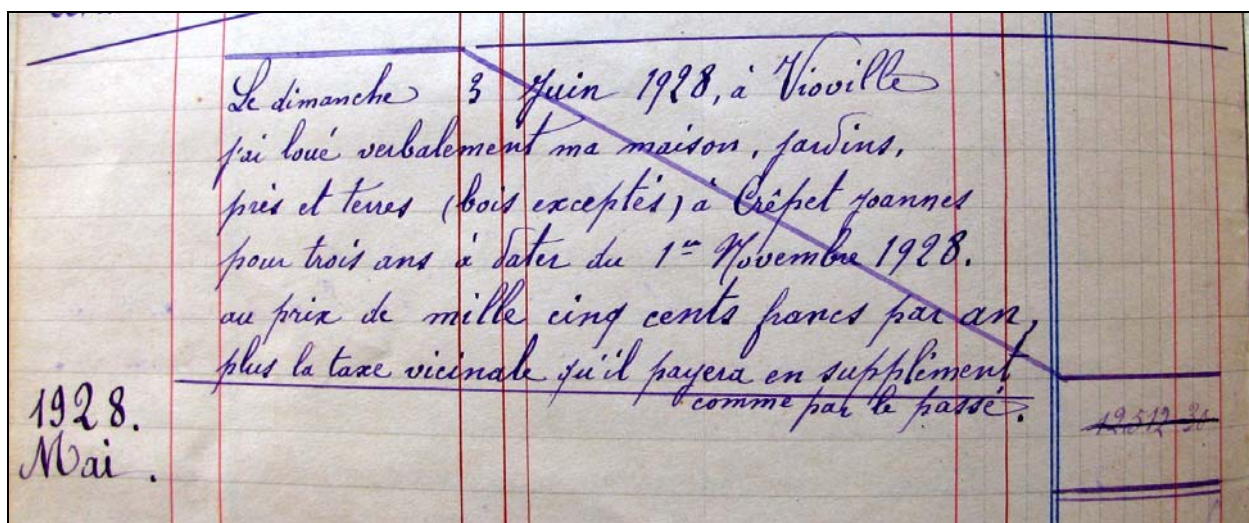 Le dimanche 3 Juin 1928, à Vioville
j'ai loué verbalement ma maison, jardins,
près et terres (bois exceptés) à Crêpet Joannes
pour trois ans à dater du 1er Novembre 1928.
au prix de mille cinq cents francs par an,
plus la taxe vicinale qu'il payera en supplément
comme par le passé.
1928.
Mai.